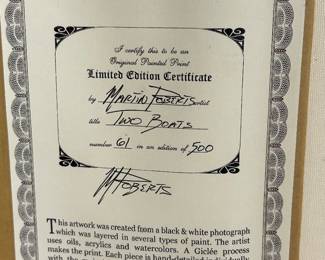 I certify this to be an
Original Painted Print
Limited Edition Certificate
by Martin Roberts artist
title Two Boats
number 61 in an edition of 500
M Roberts
This artwork was created from a black & white photograph
which was layered in several types of paint. The artist
uses oils, acrylics and watercolors. A Giclée process
makes the print. Each piece is hand-detailed individually